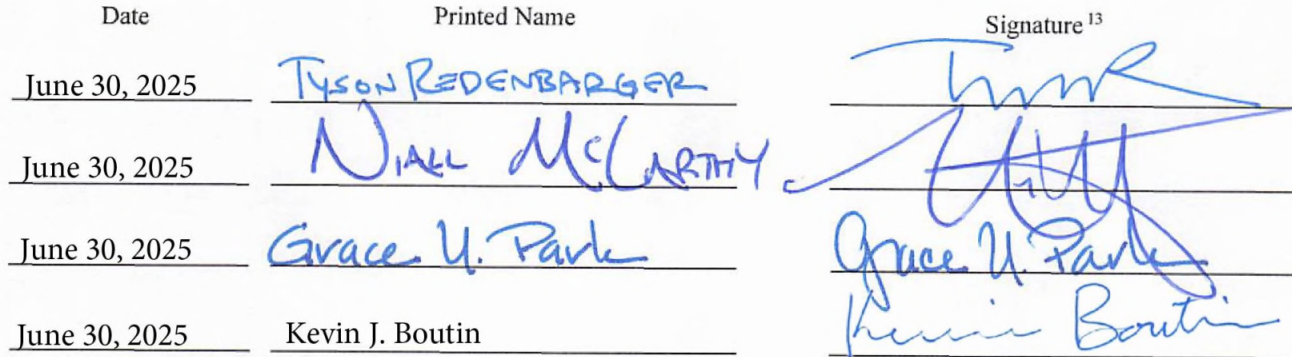 Date Printed Name Signature 13
June 30, 2025 TYSON REDENBARGER
June 30, 2025 NIALL McCARTHY
June 30, 2025 Grace U. Park Grace U. Park
June 30, 2025 Kevin J. Boutin Kevin Boutin